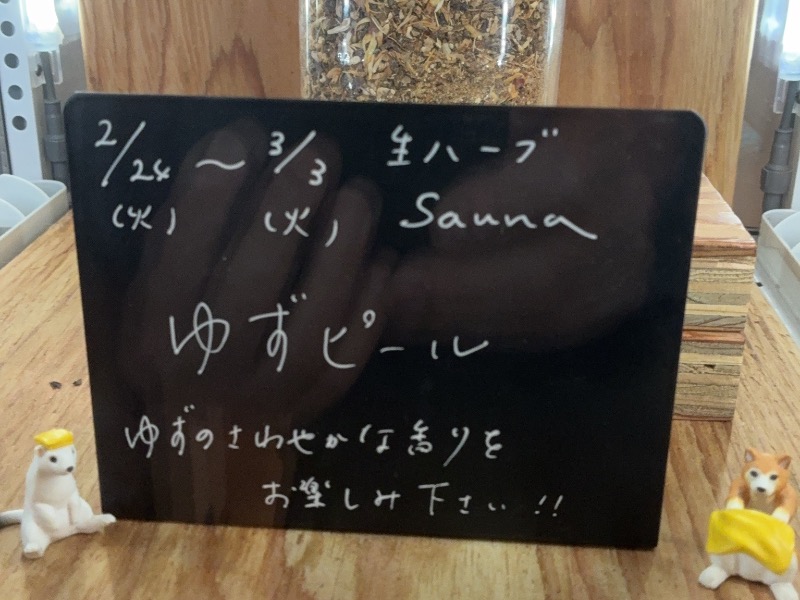 2/24 〜 3/3 生ハーブ
(火) (火) Sauna
ゆずピール
ゆずのさわやかな香りを
お楽しみ下さい!!